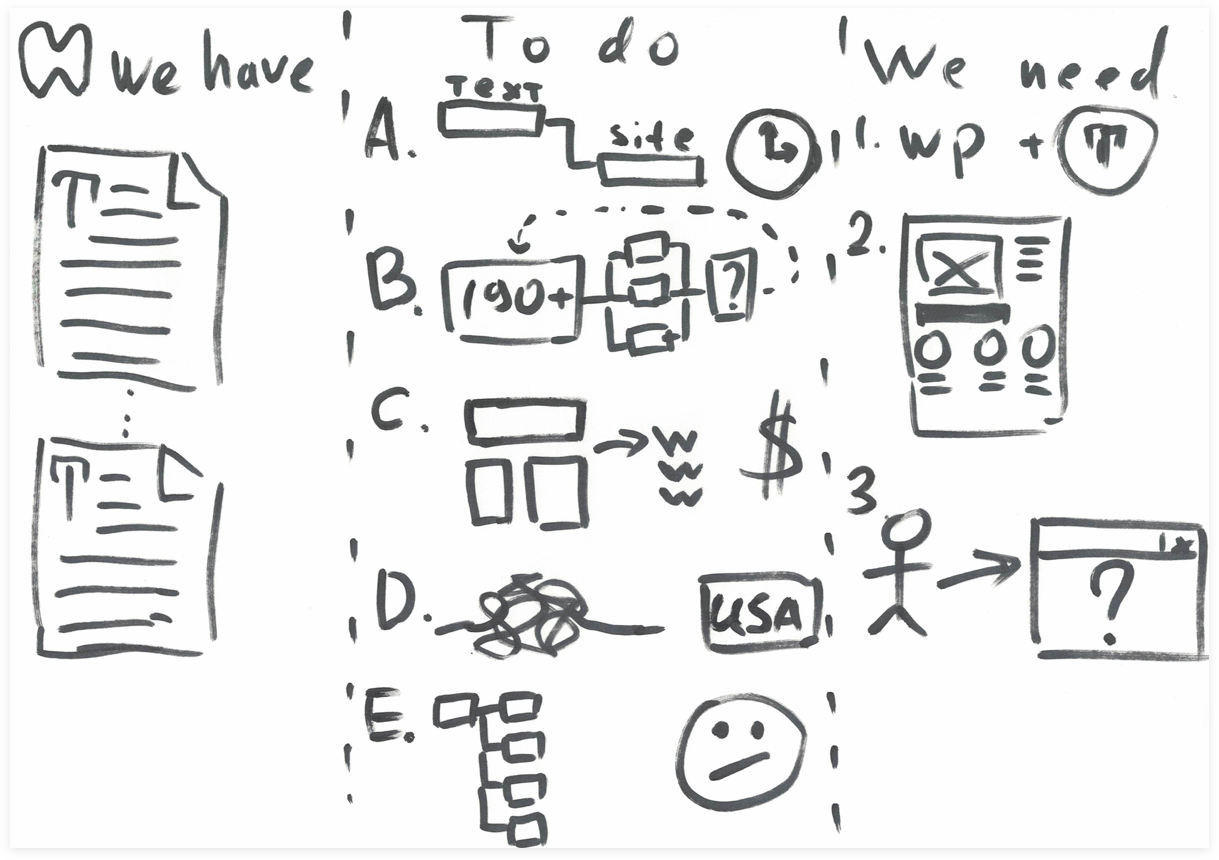 we have
T
T
To do
A. Text
site
B. 190+ ?
C. W
W
W
$
D. USA
E.
We need
1. wp + T
2.
3
x
?